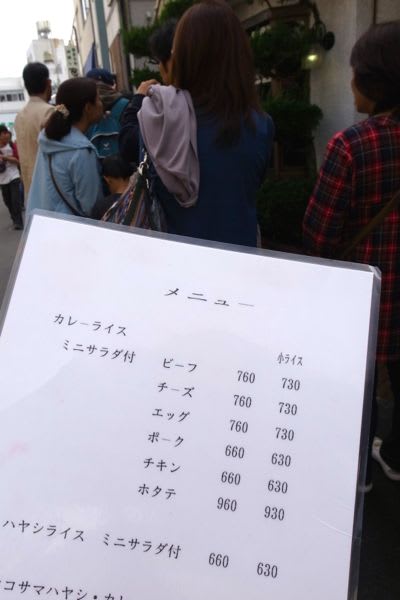 メニュー
カレーライス
小ライス
ミニサラダ付 ビーフ 760 730
チーズ 760 730
エッグ 760 730
ポーク 660 630
チキン 660 630
ホタテ 960 930
ハヤシライス ミニサラダ付 660 630
コサマハヤシ・カレ